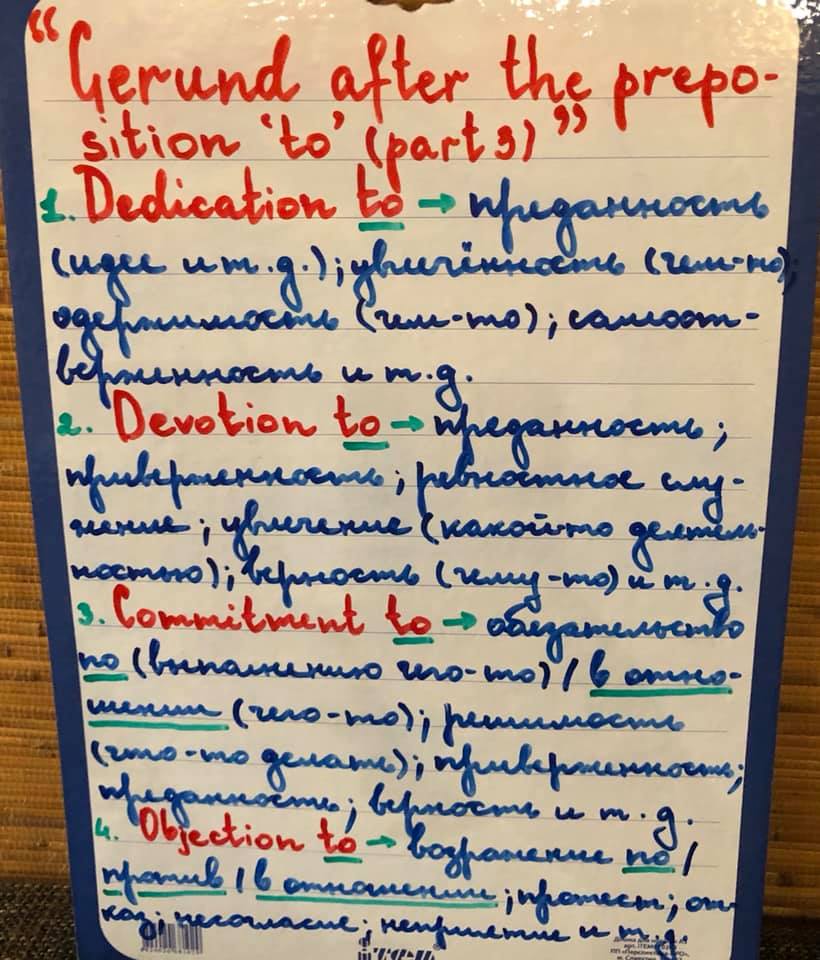 “Gerund after the prepo-
sition ‘to’ (part 3)”
1. Dedication to → преданность
(идее и т.д.); увлечённость (чем-то);
одержимость (чем-то); самоот-
верженность и т.д.
2. Devotion to → преданность;
приверженность; ревностное слу-
жение; увлечение (какой-то деятель-
ностью); верность (чему-то) и т.д.
3. Commitment to → обязательство
по (выполнению чего-то) / в отно-
шении (чего-то); решимость
(что-то делать); приверженность;
преданность; верность и т.д.
4. Objection to → возражение по /
против / в отношении; протест; от-
каз; несогласие; неприятие и т.д.